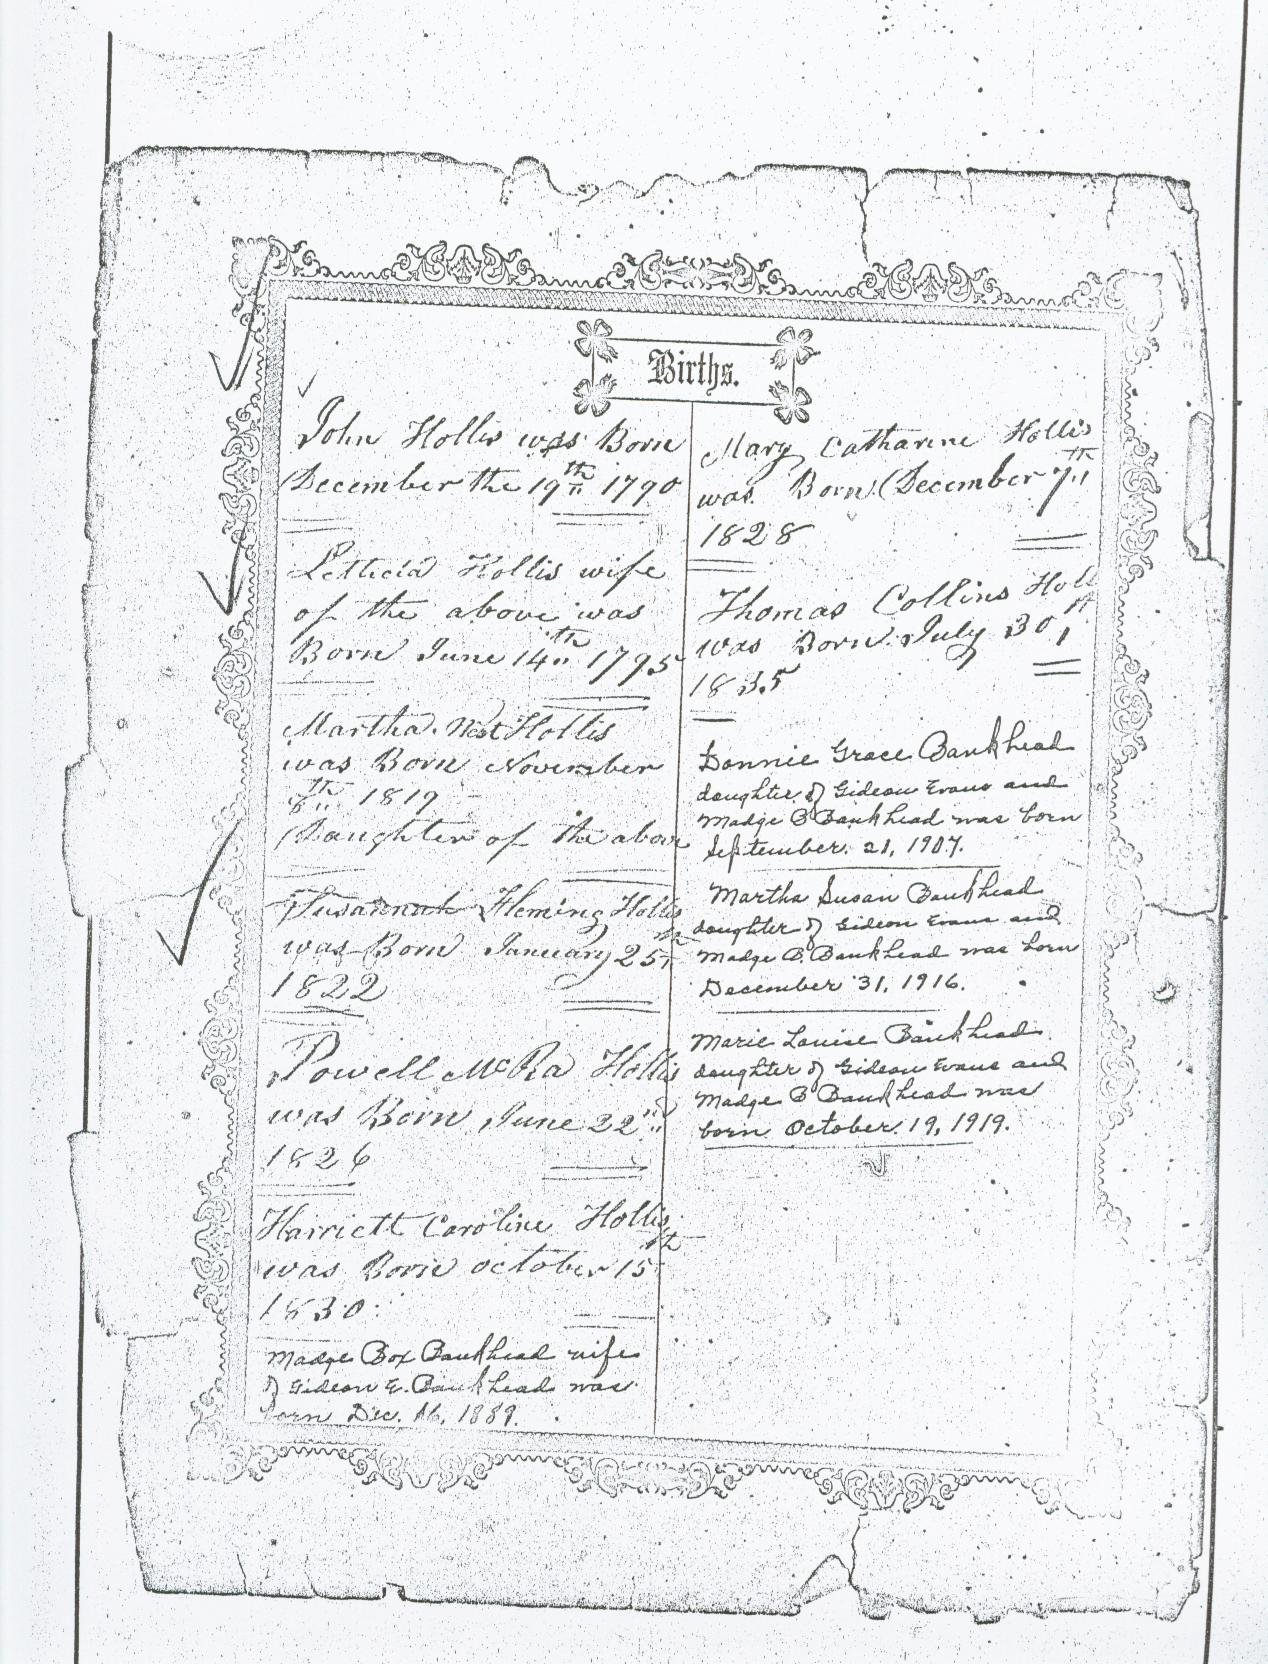 Births.
John Hollis was Born
December the 19th 1790
Letticia Hollis wife
of the above was
Born June 14th 1795
Martha West Hollis
was Born November
8th 1819
Daughter of the above
Susannah Fleming Hollis
was Born January 25th
1822
Powell McRa Hollis
was Born June 22nd
1826
Harriett Caroline Hollis
was Born October 15th
1830
Madge Box Bankhead wife
of Gideon E. Bankhead was
born Dec. 16, 1889.
Mary Catharine Hollis
was Born December 7th
1828
Thomas Collins Holl
was Born July 30th
1835
Donnie Grace Bankhead
daughter of Gideon Evans and
Madge B Bankhead was born
September 21, 1907.
Martha Susan Bankhead
daughter of Gideon Evans and
Madge B. Bankhead was born
December 31, 1916.
Marie Louise Bankhead
daughter of Gideon Evans and
Madge B Bankhead was
born October 19, 1919.